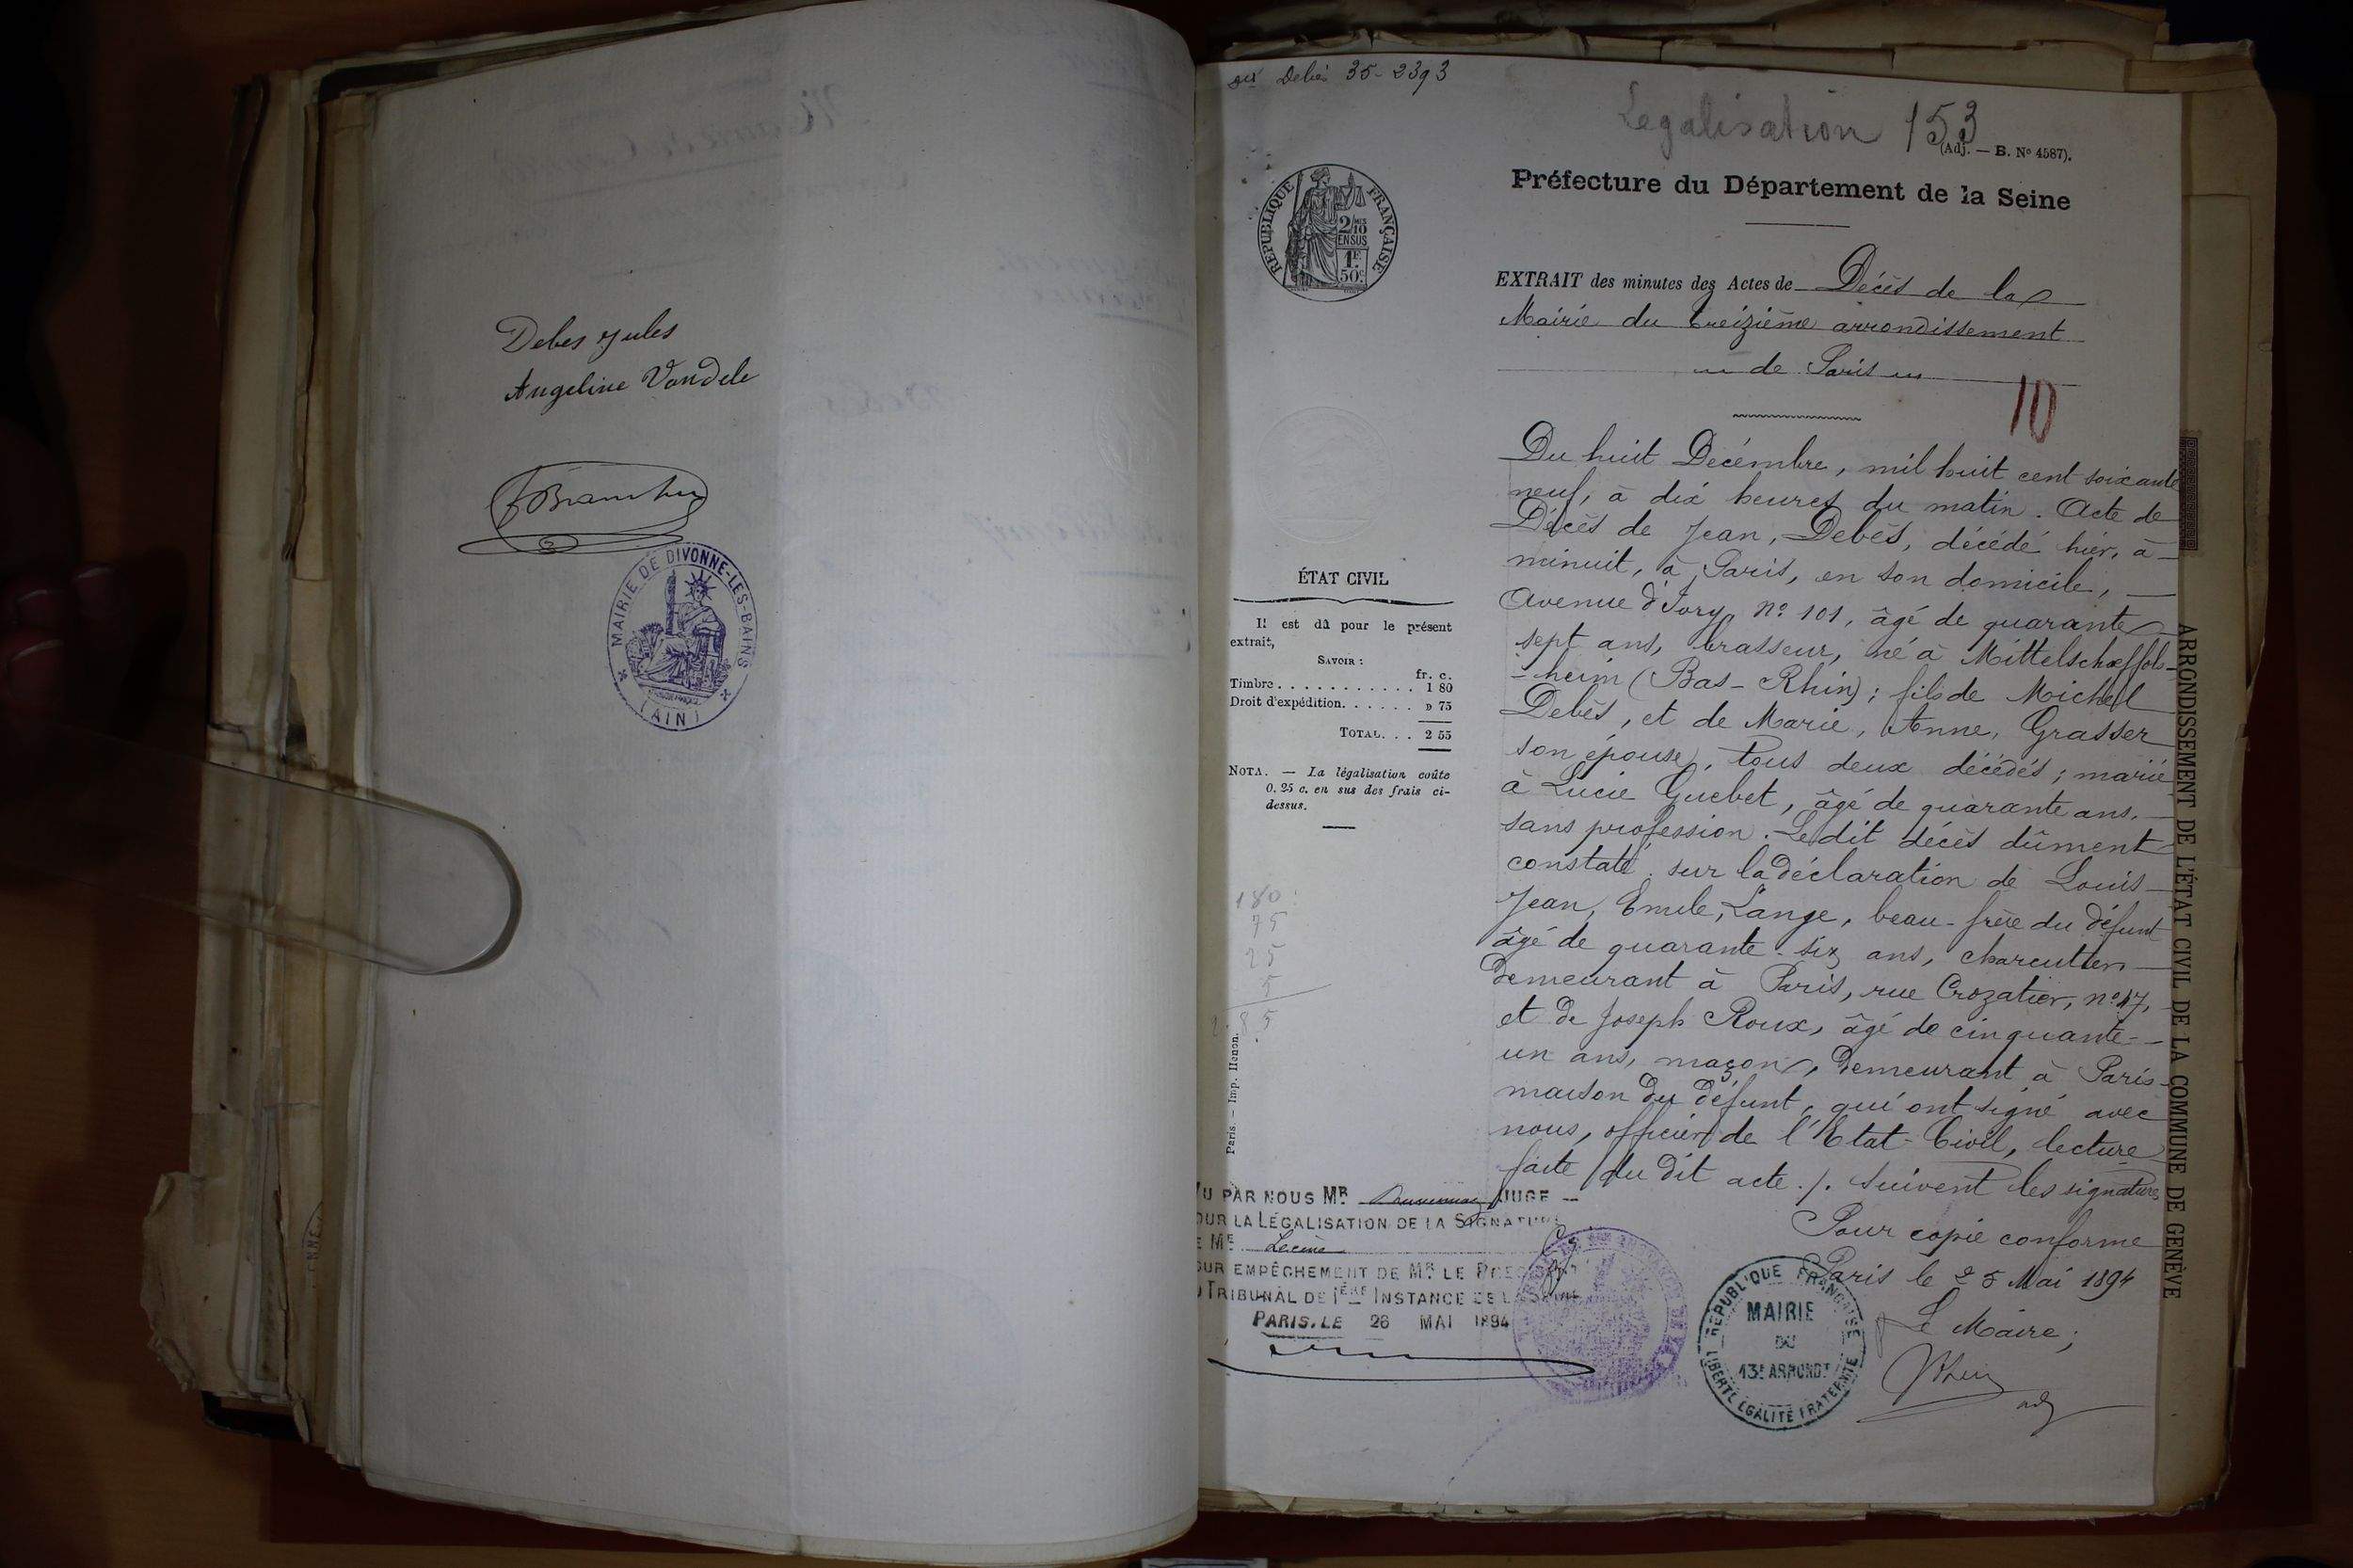 Debes Jules
Angeline Vandele
MAIRIE DE DIVONNE-LES-BAINS
(AIN)
Debès 35-2393
Legalisation 153
(Adj. — B. Nº 4587).
Préfecture du Département de la Seine
RÉPUBLIQUE FRANÇAISE
2/10
EN SUS
1F.
50c.
EXTRAIT des minutes des Actes de Décès de la
Mairie du treizième arrondissement
de Paris
10
Du huit Décembre, mil huit cent soixante
neuf, à dix heures du matin. Acte de
Décès de Jean, Debès, décédé hier, à
minuit, à Paris, en son domicile,
Avenue d'Ivry, Nº 101, âgé de quarante
sept ans, brasseur, né à Mittelschœffols-
-heim (Bas-Rhin); fils de Michel
Debès, et de Marie, Anne, Grasser
son épouse, tous deux décédés; marié
à Lucie Guebet, âgé de quarante ans,
sans profession. Le dit décès dûment
constaté sur la déclaration de Louis
Jean, Emile, Lange, beau-frère du défunt
âgé de quarante-six ans, charcutier
demeurant à Paris, rue Crozatier, nº 47,
et de Joseph Roux, âgé de cinquante-
un ans, maçon, demeurant à Paris
maison du défunt, qui ont signé avec
nous, officier de l'Etat-Civil, lecture
faite du dit acte ./. suivent les signatures
Pour copie conforme
Paris le 25 Mai 1894
Le Maire;
adj
ÉTAT CIVIL
Il est dû pour le présent
extrait,
SAVOIR :
fr. c.
Timbre . . . . . . . . . . . . 1 80
Droit d'expédition. . . . . . . » 75
TOTAL. . . 2 55
NOTA. — La légalisation coûte
0.25 c. en sus des frais ci-
dessus.
180
75
25
5
2.85
Paris. — Imp. Henon.
VU PAR NOUS MR JUGE
POUR LA LÉGALISATION DE LA SIGNATURE
DE ME Lecène
POUR EMPÊCHEMENT DE MR LE PRESIDENT
DU TRIBUNAL DE 1ÈRE INSTANCE DE LA SEINE
PARIS, LE 26 MAI 1894
RÉPUBLIQUE FRANÇAISE
MAIRIE
DU
13E ARRONDT
LIBERTÉ ÉGALITÉ FRATERNITÉ
ARRONDISSEMENT DE L'ÉTAT CIVIL DE LA COMMUNE DE GENÈVE